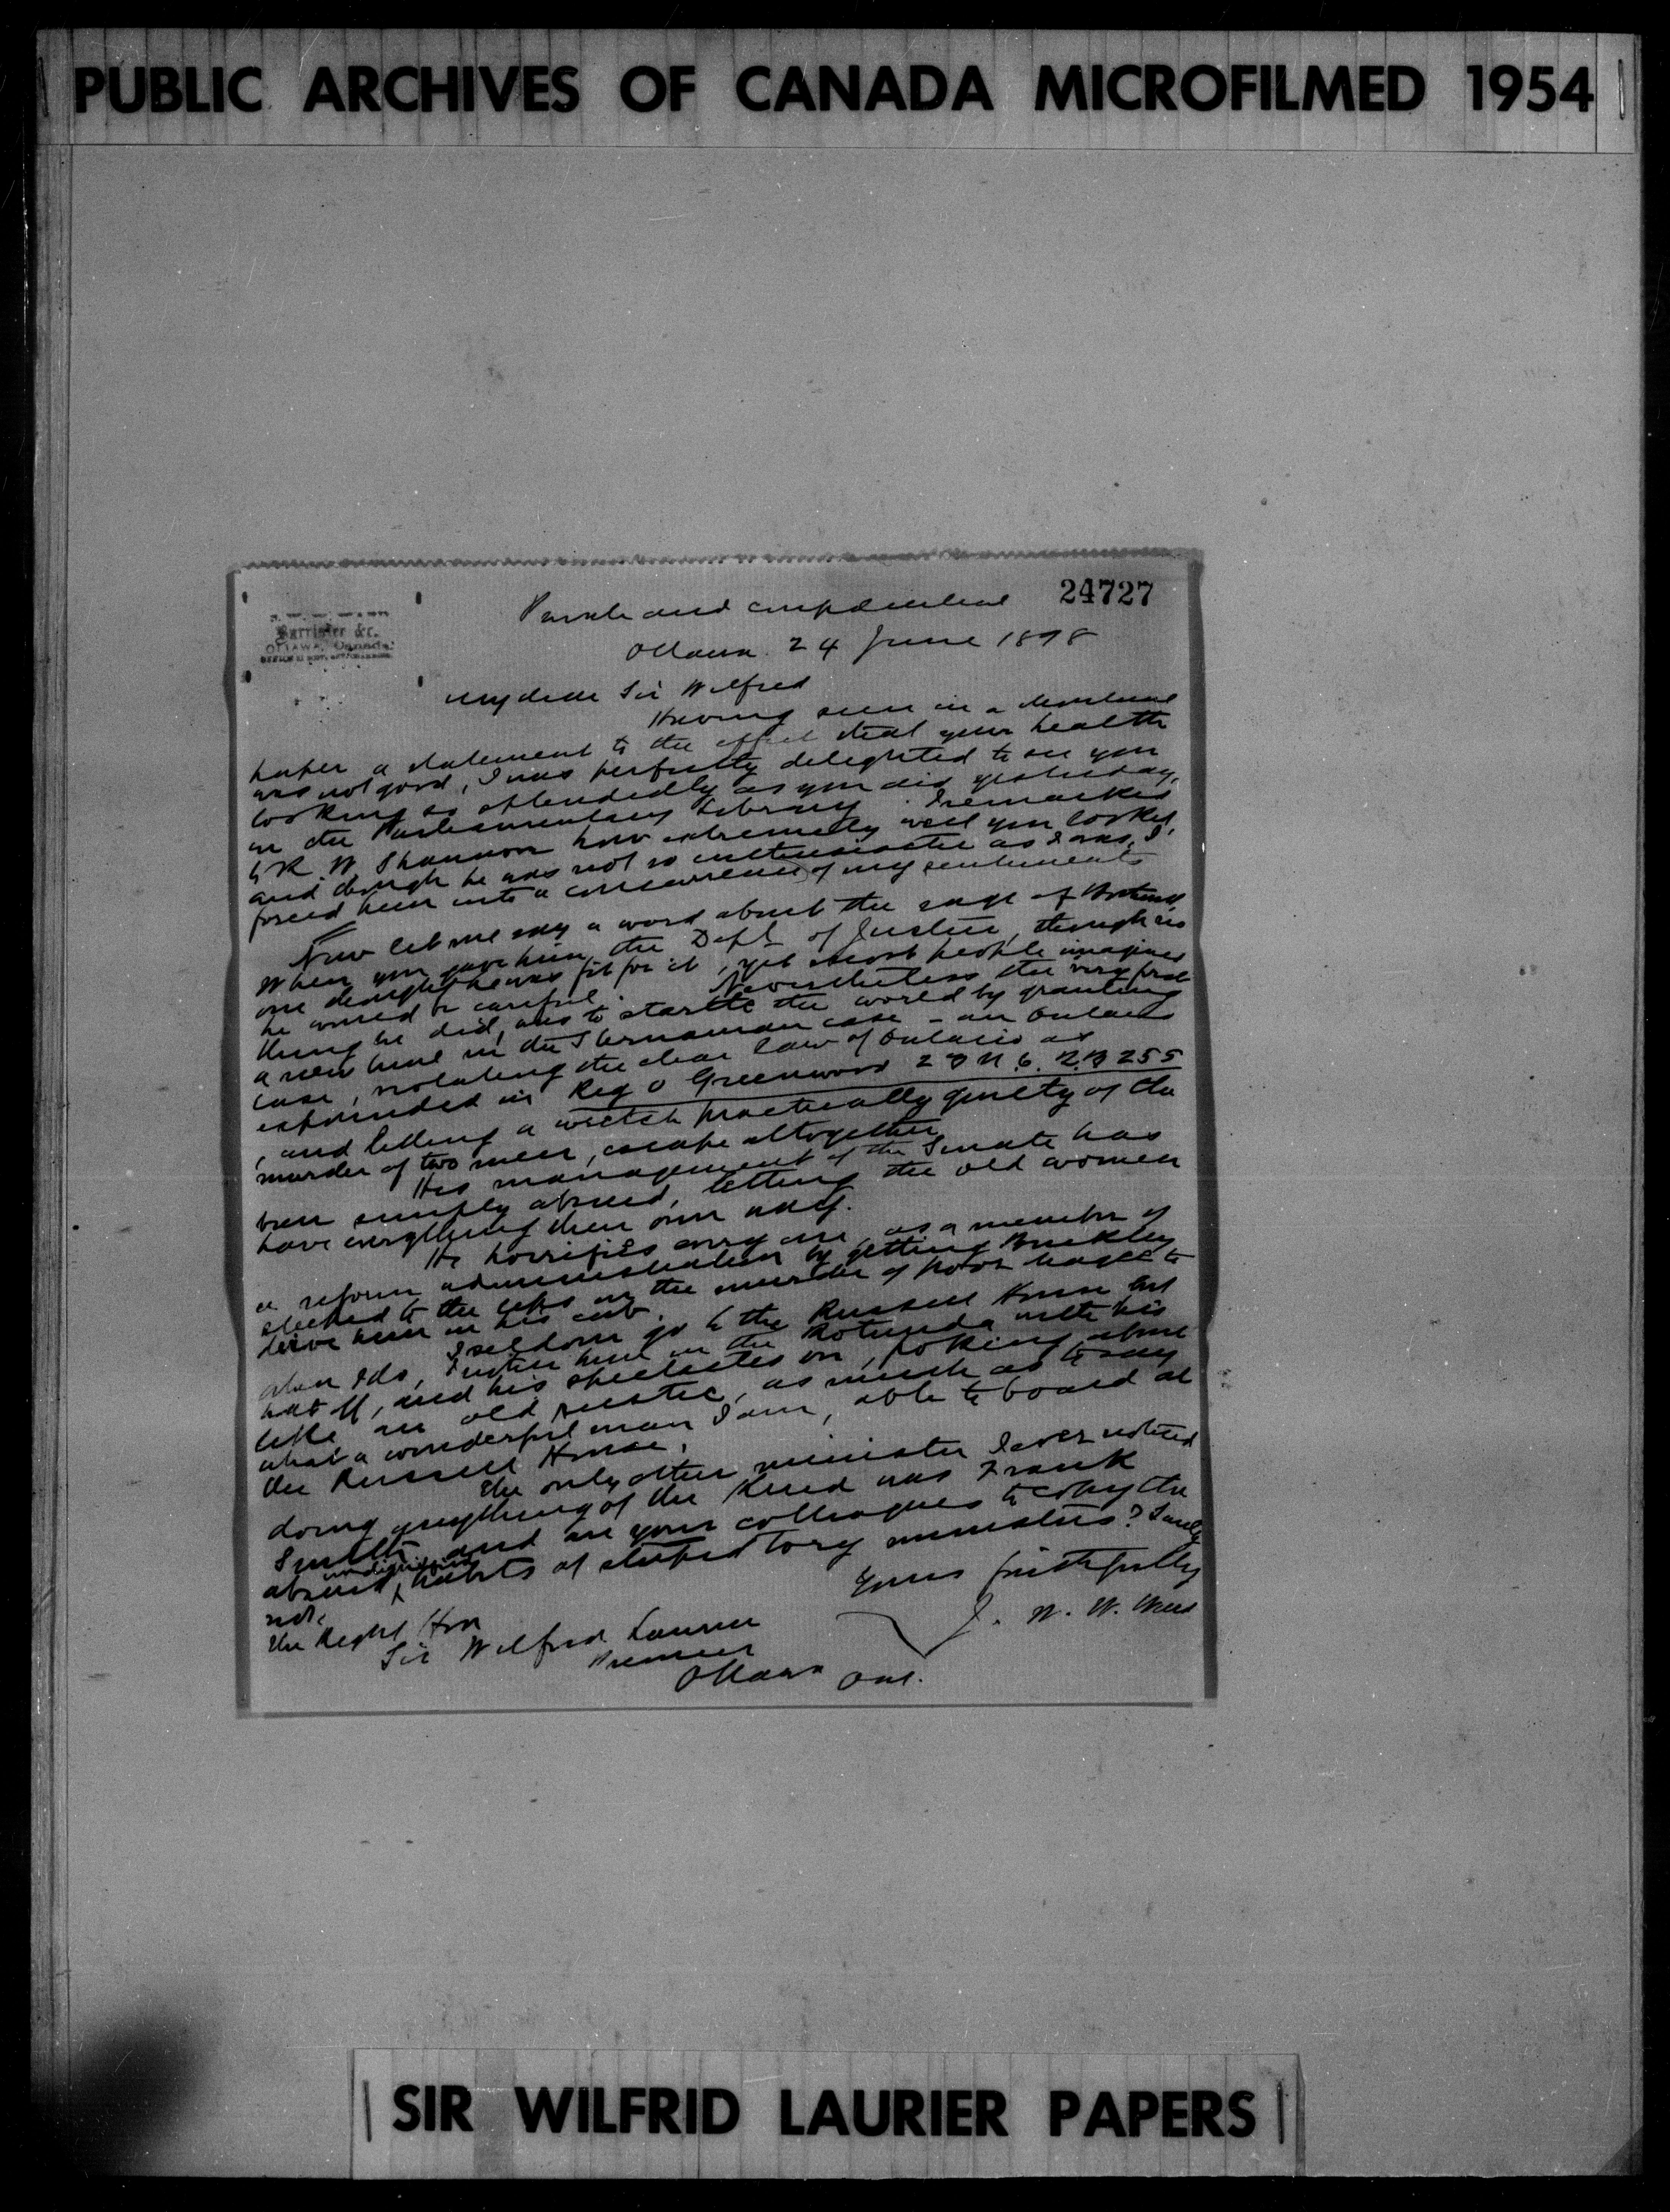 PUBLIC ARCHIVES OF CANADA MICROFILMED 1954
24727
Barrister &c.
OTTAWA, Canada.
Private and confidential
Ottawa 24 June 1898
My dear Sir Wilfred
Having seen in a
paper a statement to the effect that your health
was not good, I was perfectly delighted to see you
looking so splendidly as you did yesterday,
in the Parliamentary Library. I remarked
to R. W. Shannon how extremely well you looked,
and though he was not so enthusiastic as I was, I
forced him into a concurrence of my sentiments
Now let me say a word about the sage of
When you gave him the Dept of Justice, though no
one thought he was fit for it, yet most people imagined
he would be careful. Nevertheless the very first
thing he did, was to startle the world by granting
a new trial in the Sternaman case - an Ontario
case, violating the clear law of Ontario as
expounded in Reg v Greenwood 23 U.C. Q.B 255
, and letting a wretch practically guilty of the
murder of two men, escape altogether.
His management of the Senate has
been simply absurd, letting the old women
have everything their own way.
He horrifies every one, as a member of
a reform administration by getting
to the in the murder of poor to
drive him in his cab.
I seldom go to the Russell House but
when I do, I notice him in the Rotunda with his
hat off, and his spectacles on, poking about
like an old rustic, as much as to say
what a wonderful man I am, able to board at
the Russell House.
The only other minister I ever noticed
doing anything of the kind was Frank
Smith, and are your colleagues to copy the
absurd, undignified habits of stupid Tory ministers? Surely
not.
Yours faithfully
J. W. W.
The Right Hon
Sir Wilfred Laurier
Premier
Ottawa Ont.
SIR WILFRID LAURIER PAPERS